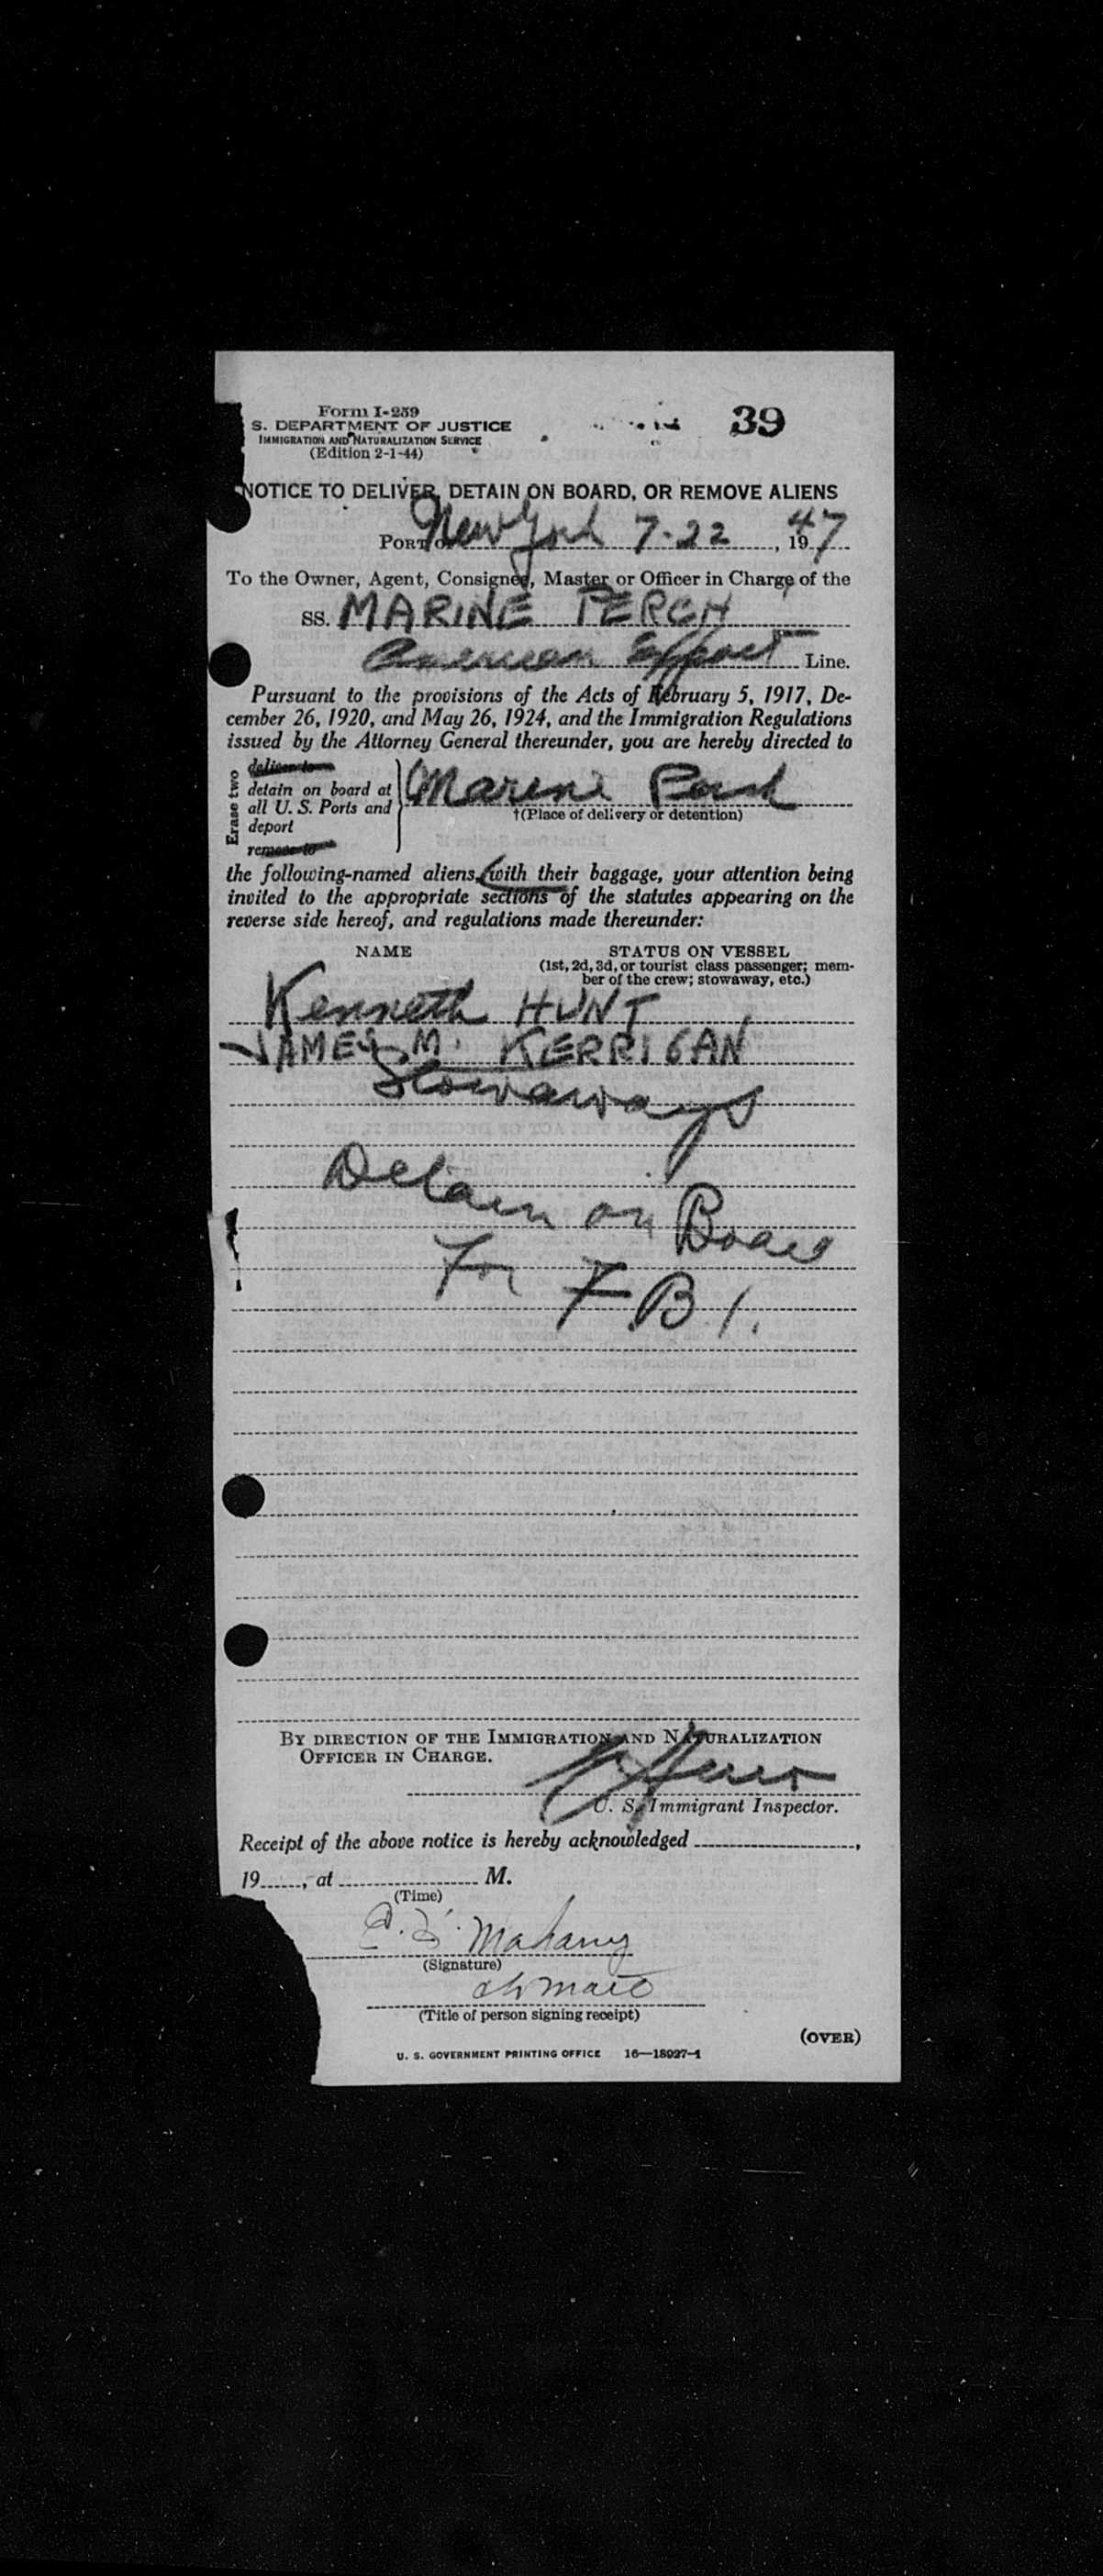 Form I-259
S. DEPARTMENT OF JUSTICE
IMMIGRATION AND NATURALIZATION SERVICE
(Edition 2-1-44)
39
NOTICE TO DELIVER, DETAIN ON BOARD, OR REMOVE ALIENS
PORT OF New York 7-22, 1947
To the Owner, Agent, Consignee, Master or Officer in Charge of the
SS. MARINE PERCH
American Export Line.
Pursuant to the provisions of the Acts of February 5, 1917, De-
cember 26, 1920, and May 26, 1924, and the Immigration Regulations
issued by the Attorney General thereunder, you are hereby directed to
Erase two
deliver to
detain on board at
all U. S. Ports and
deport
remove to
Marine Perch
†(Place of delivery or detention)
the following-named aliens, with their baggage, your attention being
invited to the appropriate sections of the statutes appearing on the
reverse side hereof, and regulations made thereunder:
NAME STATUS ON VESSEL
(1st, 2d, 3d, or tourist class passenger; mem-
ber of the crew; stowaway, etc.)
Kenneth HUNT
JAMES M. KERRIGAN
Stowaways
Detain on Board
For F.B.I.
BY DIRECTION OF THE IMMIGRATION AND NATURALIZATION
OFFICER IN CHARGE.
U. S. Immigrant Inspector.
Receipt of the above notice is hereby acknowledged ,
19 , at M.
(Time)
Mahany
(Signature)
(Title of person signing receipt)
(OVER)
U. S. GOVERNMENT PRINTING OFFICE 16—18027-1